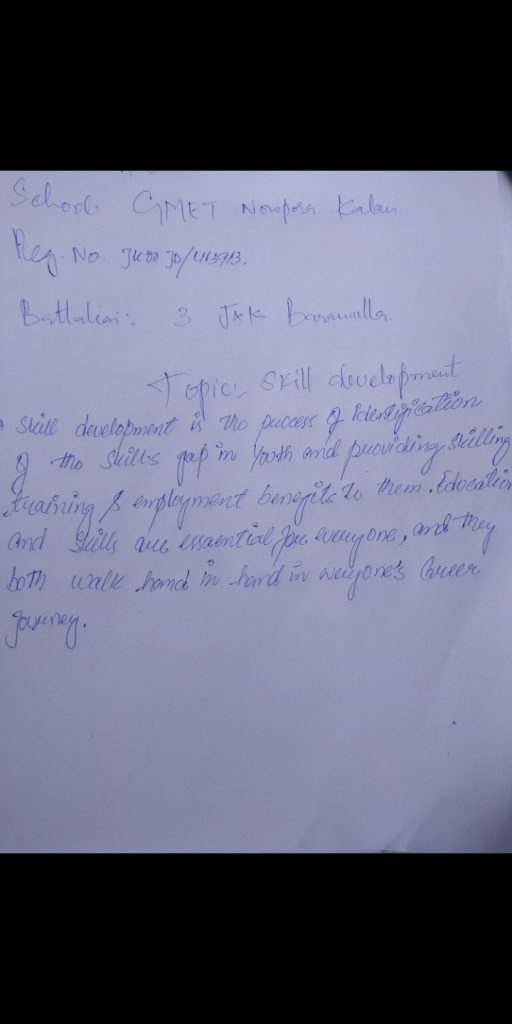 School. GMET Nowpora Kalan
Reg. No.
Battalion:. 3 J&K Baramulla.
Topic:. Skill development
Skill development is the process of identification
of the skills gap in youth and providing skilling
training & employment benefits to them. Education
and skills are essential for everyone, and they
both walk hand in hand in everyone's Career
journey.